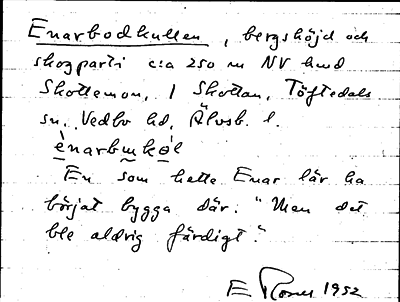 Enarbodkullen, bergshöjd och
skogsparti c:a 250 m NV hmd
Skottemon, i Skottan, Töftedals
sn. Vedbo hd, Älvsb. l.
ènarbmkǿl
En som hette Enar lär ha
börjat bygga där. "Men det
ble aldrig färdigt."
E 1952